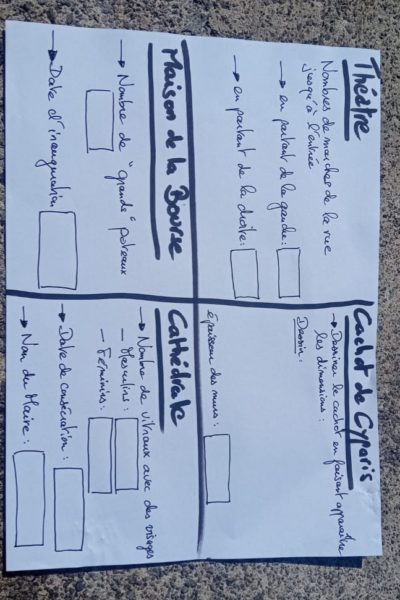 Théâtre
Nombres de marches de la rue
jusqu'à l'entrée
→ en partant de la gauche :
→ en partant de la droite :
Cachot de Cyparis
→ Dessiner le cachot en faisant apparaître
les dimensions :
Dessin :
épaisseur des murs :
Maison de la Bourse
→ Nombre de "grands" poteaux
→ Date d'inauguration
Cathédrale
→ Nombre de vitraux avec des visages
— Masculins :
— Féminins :
→ Date de consécration :
→ Nom du Maire :